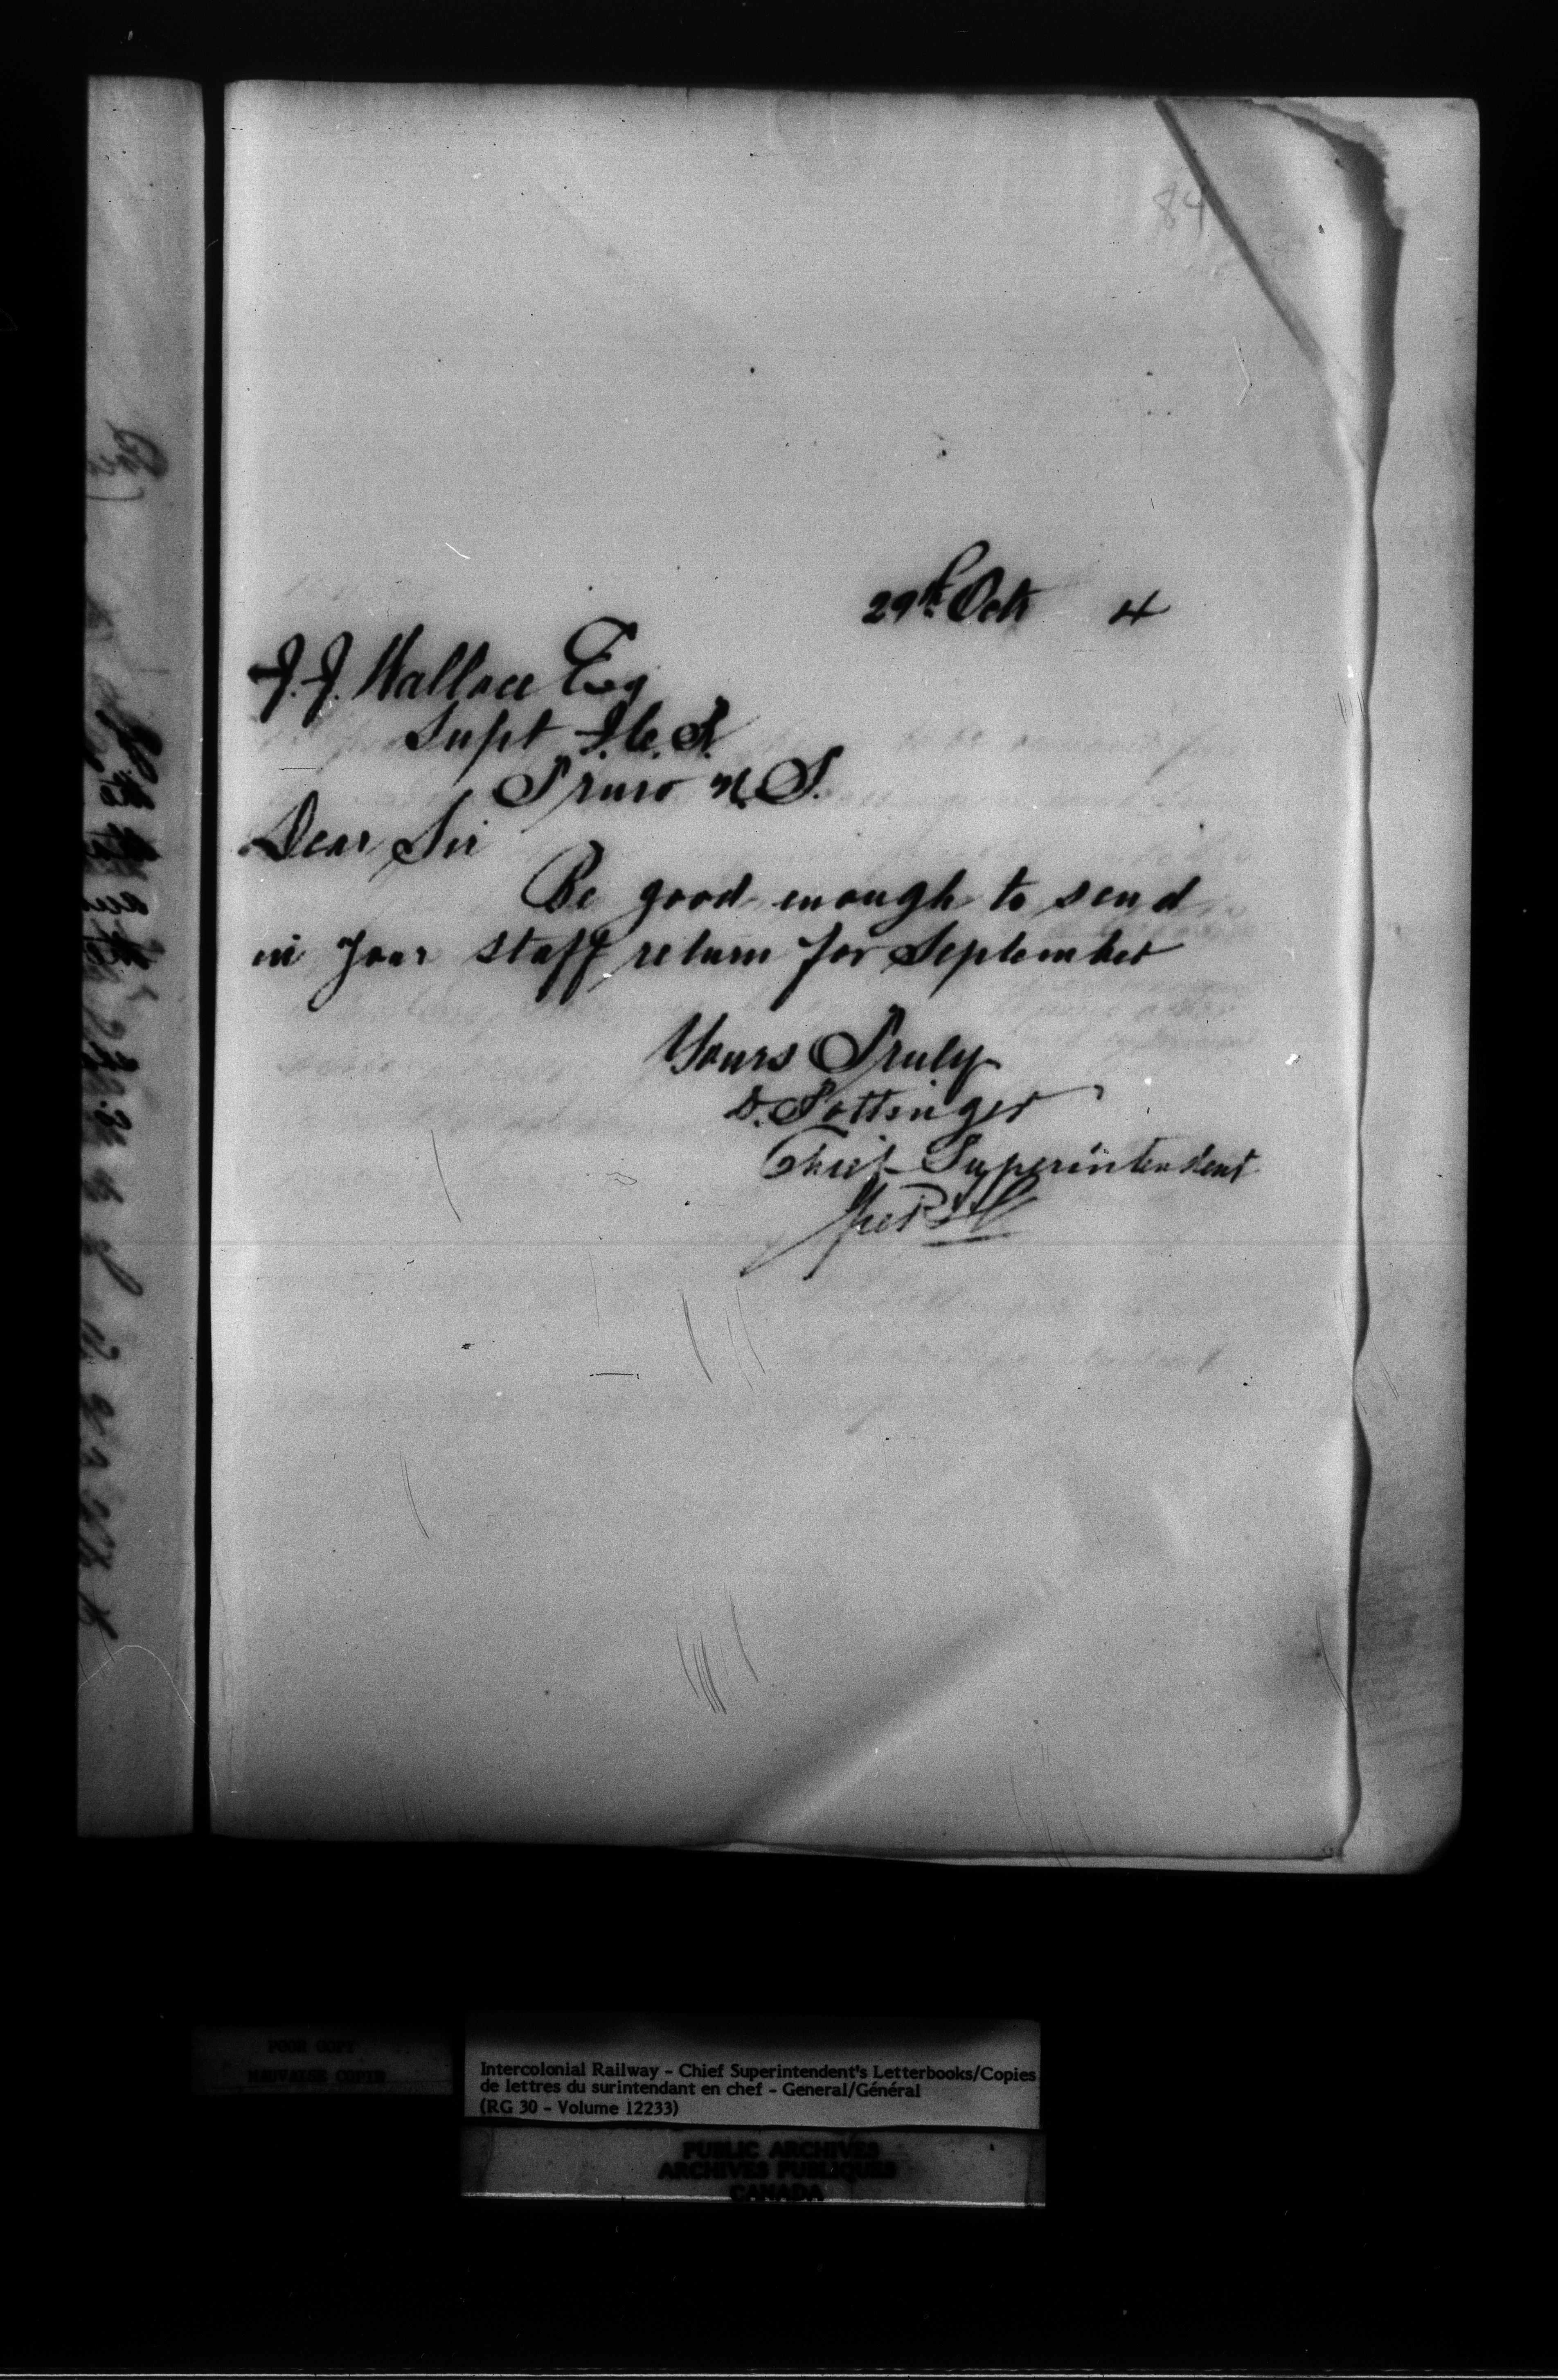 84
29th Oct 4
J.J. Wallace Esq
Supt I.C.R.
Truro N.S.
Dear Sir
Be good enough to send
in your staff return for September
Yours Truly
D. Pottinger
Chief Superintendent
POOR COPY
MAUVAISE COPIE
Intercolonial Railway - Chief Superintendent's Letterbooks/Copies
de lettres du surintendant en chef - General/Général
(RG 30 - Volume 12233)
PUBLIC ARCHIVES
ARCHIVES PUBLIQUES
CANADA